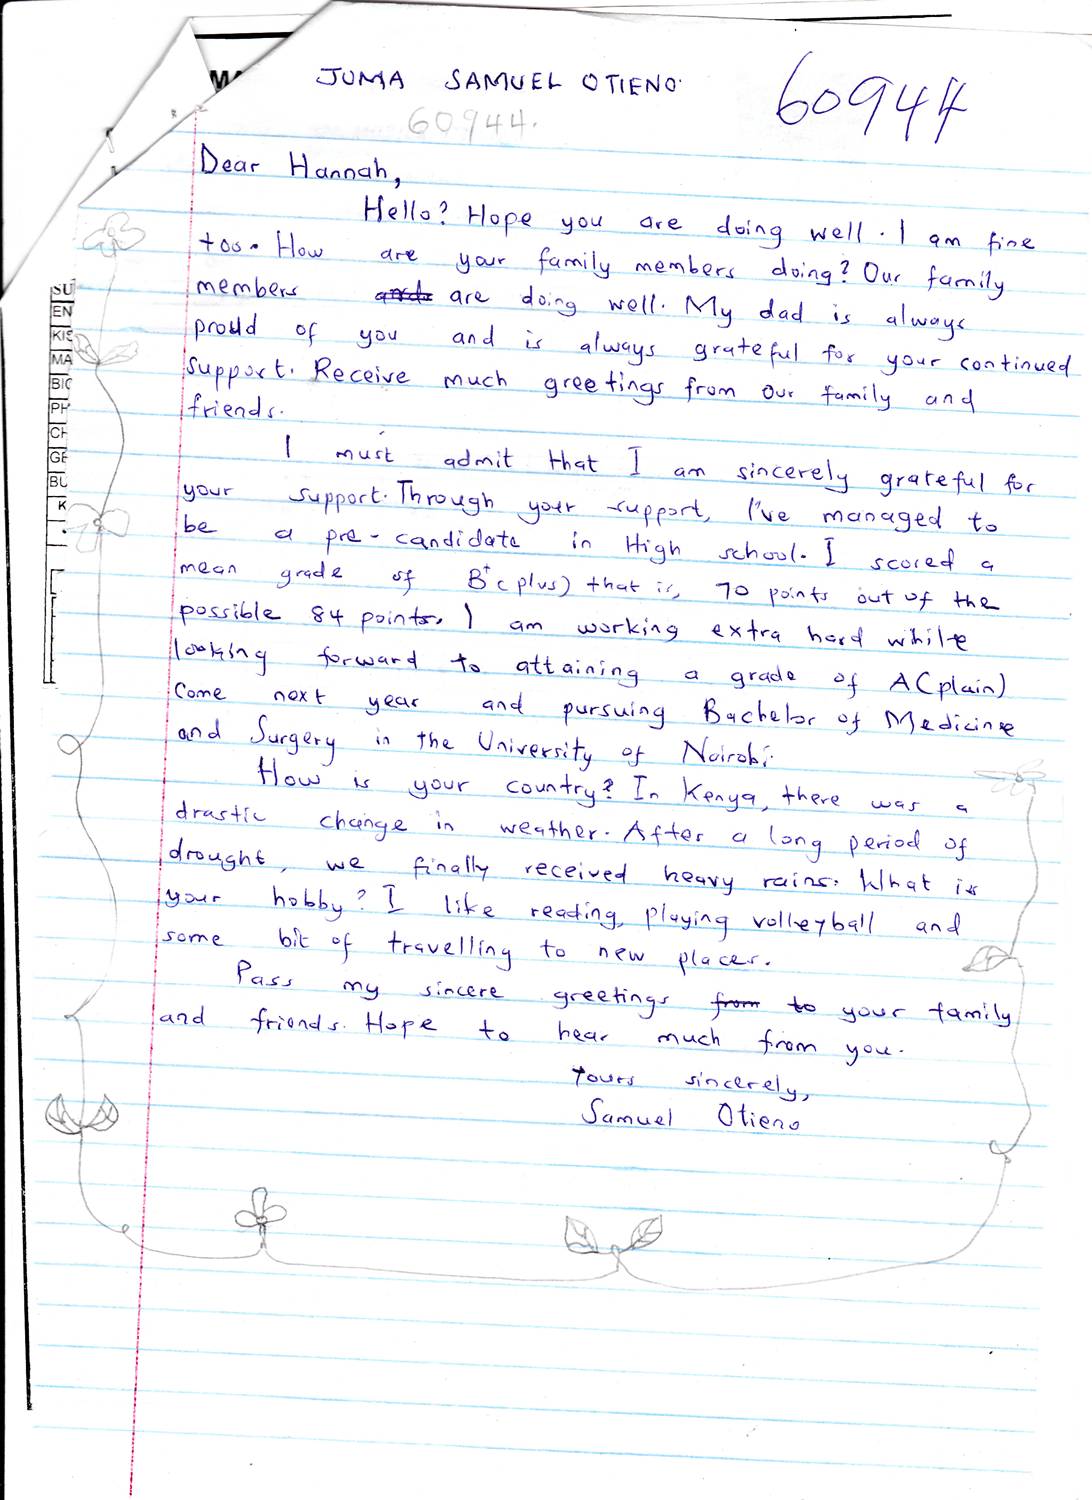 MA
JUMA SAMUEL OTIENO.
60944
60944.
Dear Hannah,
Hello? Hope you are doing well. I am fine
too. How are your family members doing? Our family
members are doing well. My dad is always
proud of you and is always grateful for your continued
support. Receive much greetings from our family and
friends.
I must admit that I am sincerely grateful for
your support. Through your support, I've managed to
be a pre-candidate in High school. I scored a
mean grade of B+(plus) that is, 70 points out of the
possible 84 points. I am working extra hard while
looking forward to attaining a grade of A(plain)
Come next year and pursuing Bachelor of Medicine
and Surgery in the University of Nairobi.
How is your country? In Kenya, there was a
drastic change in weather. After a long period of
drought, we finally received heavy rains. What is
your hobby? I like reading, playing volleyball and
some bit of travelling to new places.
Pass my sincere greetings from to your family
and friends. Hope to hear much from you.
Yours sincerely,
Samuel Otieno
SU
EN
KIS
MA
BIO
PH
CH
GE
BU
K